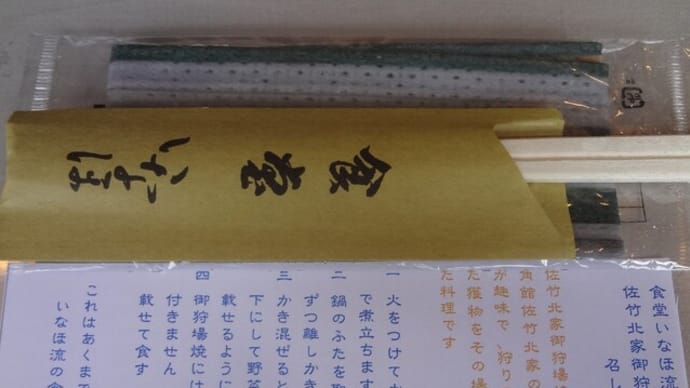 食堂
いなほ
食堂いなほ流
佐竹北家御狩
召し
佐竹北家御狩場
角館佐竹北家の
が趣味で、狩り
た獲物をその場
た料理です
一 火をつけて
で煮立ちます
二 鍋のふたを
ずつ離しかき
三 かき混ぜると
下にして野菜
載せるように
四 御狩場焼には
付きません
載せて食す
これはあくまで
いなほ流の食